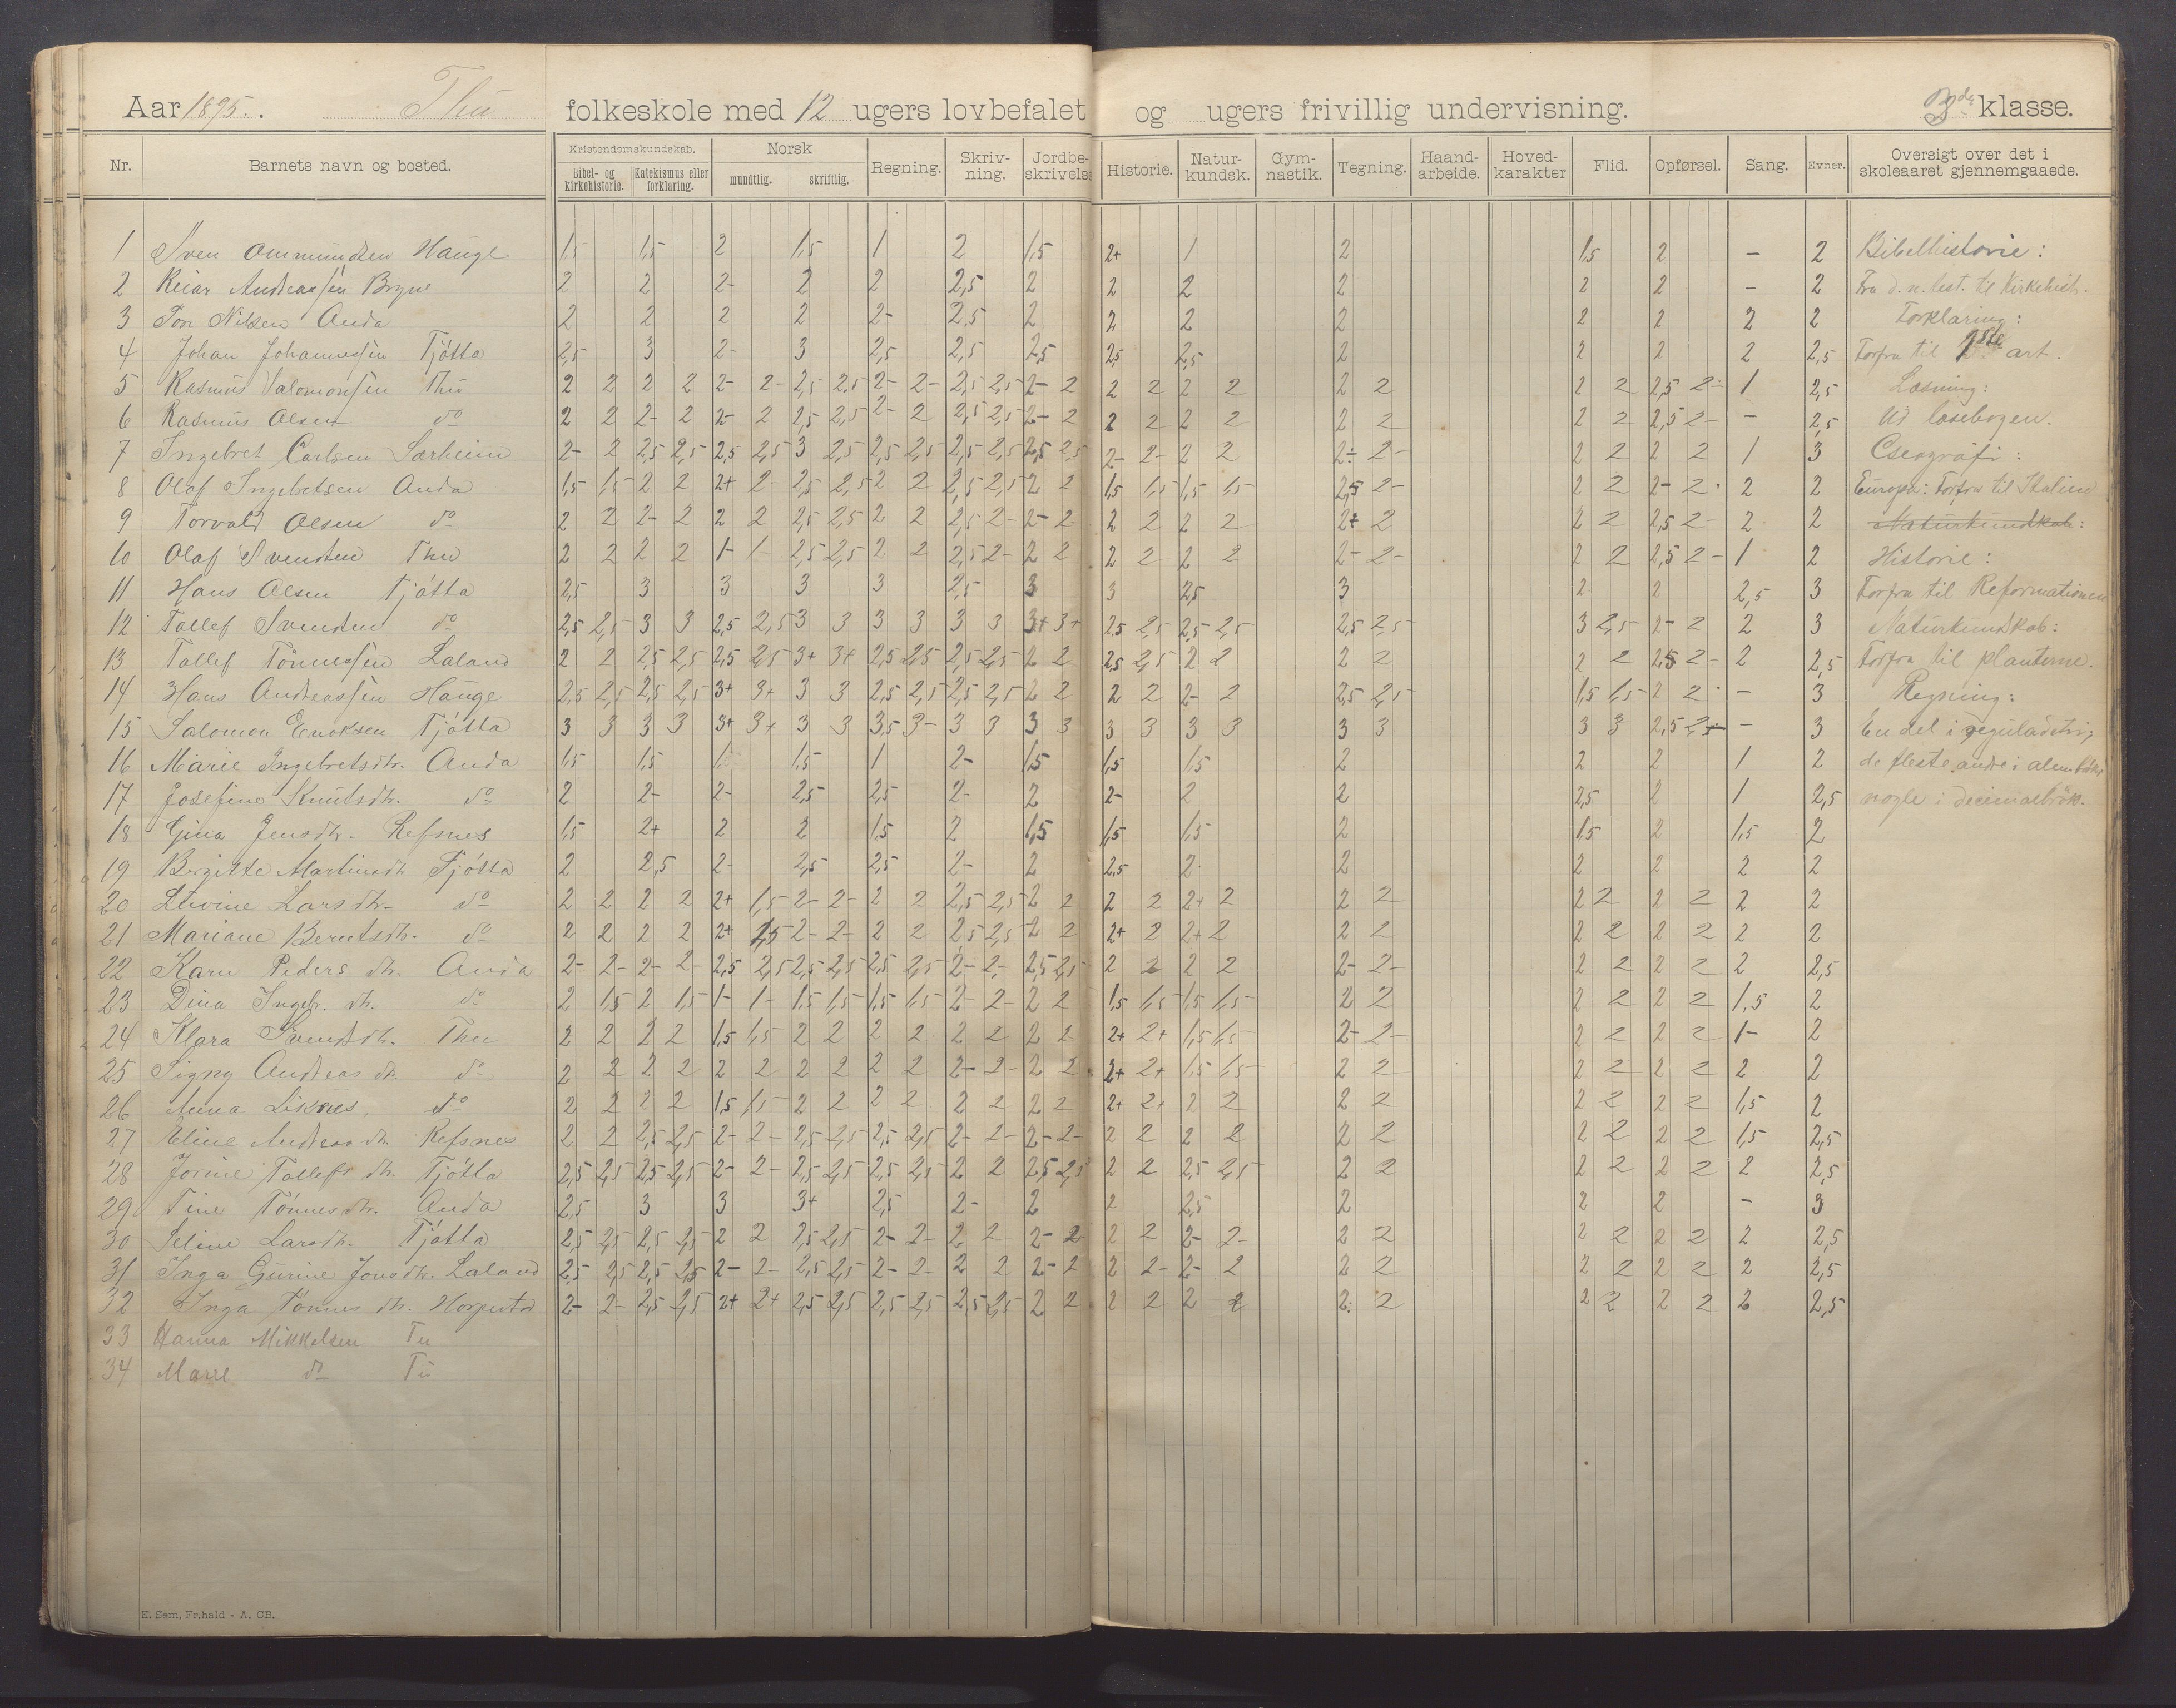 Aar 1895. Thu folkeskole med 12 ugers lovbefalet og ugers frivillig undervisning. 3de klasse.
Nr. Barnets navn og bosted. Kristendomskundskab. Bibel- og kirkehistorie. Katekismus eller forklaring. Norsk mundtlig. skriftlig. Regning. Skriv-ning. Jordbe-skrivelse Historie. Natur-kundsk. Gym-nastik. Tegning. Haand-arbeide. Hoved-karakter Flid. Opførsel. Sang. Evner. Oversigt over det i skoleaaret gjennemgaaede.
1 Sven Ommundsen Hauge 1,5 1,5 2 1,5 1 2 1,5 2+ 1 2 1,5 2 — 2 Bibelhistorie:
2 Reiar Andreassen Bryne 2 2 2- 2 2 2,5 2 2 2 2 2 2 — 2 Fra d. n. test. til Kirkehist.
3 Tore Nilsen Anda 2 2 2 2 2- 2,5 2 2 2 2 2 2 2 2 Forklaring:
4 Johan Johannessen Tjøtta 2,5 3 2- 3 2,5 2,5 2,5 2,5 2,5 2 2 2 2 2,5 Forfra til art.
5 Rasmus Salomonsen Thu 2 2 2 2 2- 2- 2,5 2,5 2- 2- 2,5 2,5 2- 2 2 2 2 2 2 2 2 2 2,5 2- 1 2,5 Læsning:
6 Rasmus Olsen do 2 2 2- 2 2- 2 2,5 2,5 2- 2 2,5 2,5 2- 2 2 2 2 2 2 2 2 2 2,5 2- — 2,5 Ud læsebogen.
7 Ingebret Carlsen Særheim 2- 2 2,5 2,5 2,5 2,5 3 2,5 2,5 2,5 2,5 2,5 2,5 2,5 2- 2- 2 2 2- 2- 2 2 2 2 1 3 Geografi:
8 Olaf Ingebretsen Anda 1,5 1,5 2 2 2+ 2- 2,5 2,5 2 2 2,5 2,5 2 2 1,5 1,5 1,5 1,5 2,5 2- 2 2 2- 2- 2 2 Europa: Forfra til Italien
9 Torvald Olsen do 2 2 2- 2 2 2 2,5 2,5 2 2 2,5 2- 2- 2 2 2 2 2 2+ 2 2 2 2,5 2- 2 2 Naturkundskab:
10 Olaf Svendsen Thu 2 2 2 2 1- 1- 2,5 2,5 2 2 2,5 2- 2 2 2 2 2 2 2- 2- 2 2 2,5 2- 1 2 Historie:
11 Hans Olsen Tjøtta 2,5 3 3 3 3 2,5 3 3 2,5 3 2 2 2,5 3 Forfra til Reformationen
12 Tollef Svendsen do 2,5 2,5 3 3 2,5 2,5 3 3 3 3 3 3 3+ 3+ 2,5 2,5 2,5 2,5 2,5 2,5 3 2,5 2- 2 2 3 Naturkundskab:
13 Tollef Tønnessen Laland 2 2 2,5 2,5 2,5 2,5 3+ 3+ 2,5 2,5 2,5 2,5 2 2 2,5 2,5 2 2 2 2 2 2 2,5 2- 2 2,5 Forfra til planterne.
14 Hans Andreassen Hauge 2,5 2,5 2,5 2,5 3+ 3+ 3 3 2,5 2,5 2,5 2,5 2 2 2 2 2- 2 2,5 2,5 1,5 1,5 2 2- — 3 Regning:
15 Salomon Enoksen Tjøtta 3 3 3 3 3+ 3+ 3 3 3,5 3- 3 3 3 3 3 3 3 3 3 3 3 3 2,5 2+ — 3 En del i reguladetri,
16 Marie Ingebretsdtr. Anda 1,5 1,5 1,5 1,5 1 2- 1,5 1,5 1,5 2 2 2 1 2 de fleste andre i alm. brøk
17 Josefine Knutsdtr. do 2 2- 2- 2,5 2,5 2- 2 2- 2 2 2,5 2 1 2,5 nogle i decimalbrøk.
18 Gina Jensdtr. Refsnes 1,5 2+ 2 2 1,5 2 1,5 1,5 1,5 2 1,5 2 1,5 2
19 Bergitte Martinsdtr. Tjøtta 2 2,5 2- 2,5 2,5 2- 2 2,5 2- 2 2 2 2 2
20 Lovine Larsdtr. do 2 2 2 2 2+ 1,5 2- 2- 2 2 2,5 2,5 2 2 2 2 2+ 2 2 2 2 2 2 2 2 2
21 Mariane Berntsdtr. do 2 2 2 2 2+ 1,5 2- 2- 2 2 2,5 2,5 2 2 2+ 2 2+ 2 2 2 2 2 2 2 2 2
22 Karn Peders dtr. Anda 2- 2- 2- 2- 2,5 2,5 2,5 2,5 2,5 2,5 2- 2- 2,5 2,5 2 2 2 2 2- 2- 2 2 2 2 2 2,5
23 Dina Ingebr. dtr. do 2 1,5 2 1,5 1- 1- 1,5 1,5 1,5 1,5 2- 2- 2 2 1,5 1,5 1,5 1,5 2 2 2 2 2 2 1,5 2
24 Klara Svendsdtr. Thu 2 2 2 2 1,5 1,5 2 2 2 2 2 2 2 2 2+ 2+ 1,5 1,5 2- 2- 2 2 2 2 1- 2
25 Signy Andreas dtr. do 2 2 2 2 2 2 2 2 2 2 2- 2- 2 2 2+ 2+ 1,5 1,5 2 2 2 2 2 2 2 2
26 Anna Liknes. do 2 2 2 2 1,5 1,5 2 2 2 2 2 2 2 2 2+ 2+ 2 2 2 2 2 2 2 2 1,5 2
27 Eline Andreas dtr. Refsnes 2 2 2,5 2,5 2- 2- 2,5 2,5 2,5 2,5 2- 2- 2- 2- 2 2 2 2 2 2 2 2 2 2 1,5 2,5
28 Jorine Tollefs dtr. Tjøtta 2,5 2,5 2,5 2,5 2- 2- 2,5 2,5 2,5 2,5 2 2 2,5 2,5 2 2 2,5 2,5 2 2 2 2 2 2 2 2,5
29 Tine Tønnesdtr. Anda 2,5 3 3 3+ 2,5 2- 2 2 2,5 2 2 2 — 3
30 Seline Larsdtr. Tjøtta 2,5 2,5 2,5 2,5 2 2 2,5 2,5 2- 2- 2 2 2- 2 2 2 2- 2- 2 2 2 2 2 2 2 2,5
31 Inga Gurine Jonsdtr. Laland 2,5 2,5 2,5 2,5 2- 2- 2,5 2,5 2- 2- 2 2 2- 2 2 2- 2- 2 2 2 2 2 2 2 2 2,5
32 Inga Tønnes dtr. Horpestad 2- 2- 2,5 2,5 2+ 2+ 2,5 2,5 2,5 2,5 2,5 2,5 2 2 2 2 2 2 2- 2 2 2 2 2 2 2,5
33 Hanna Mikkelsen Tu
34 Marie do Tu
E. Sem, Fr.hald - A. CB.